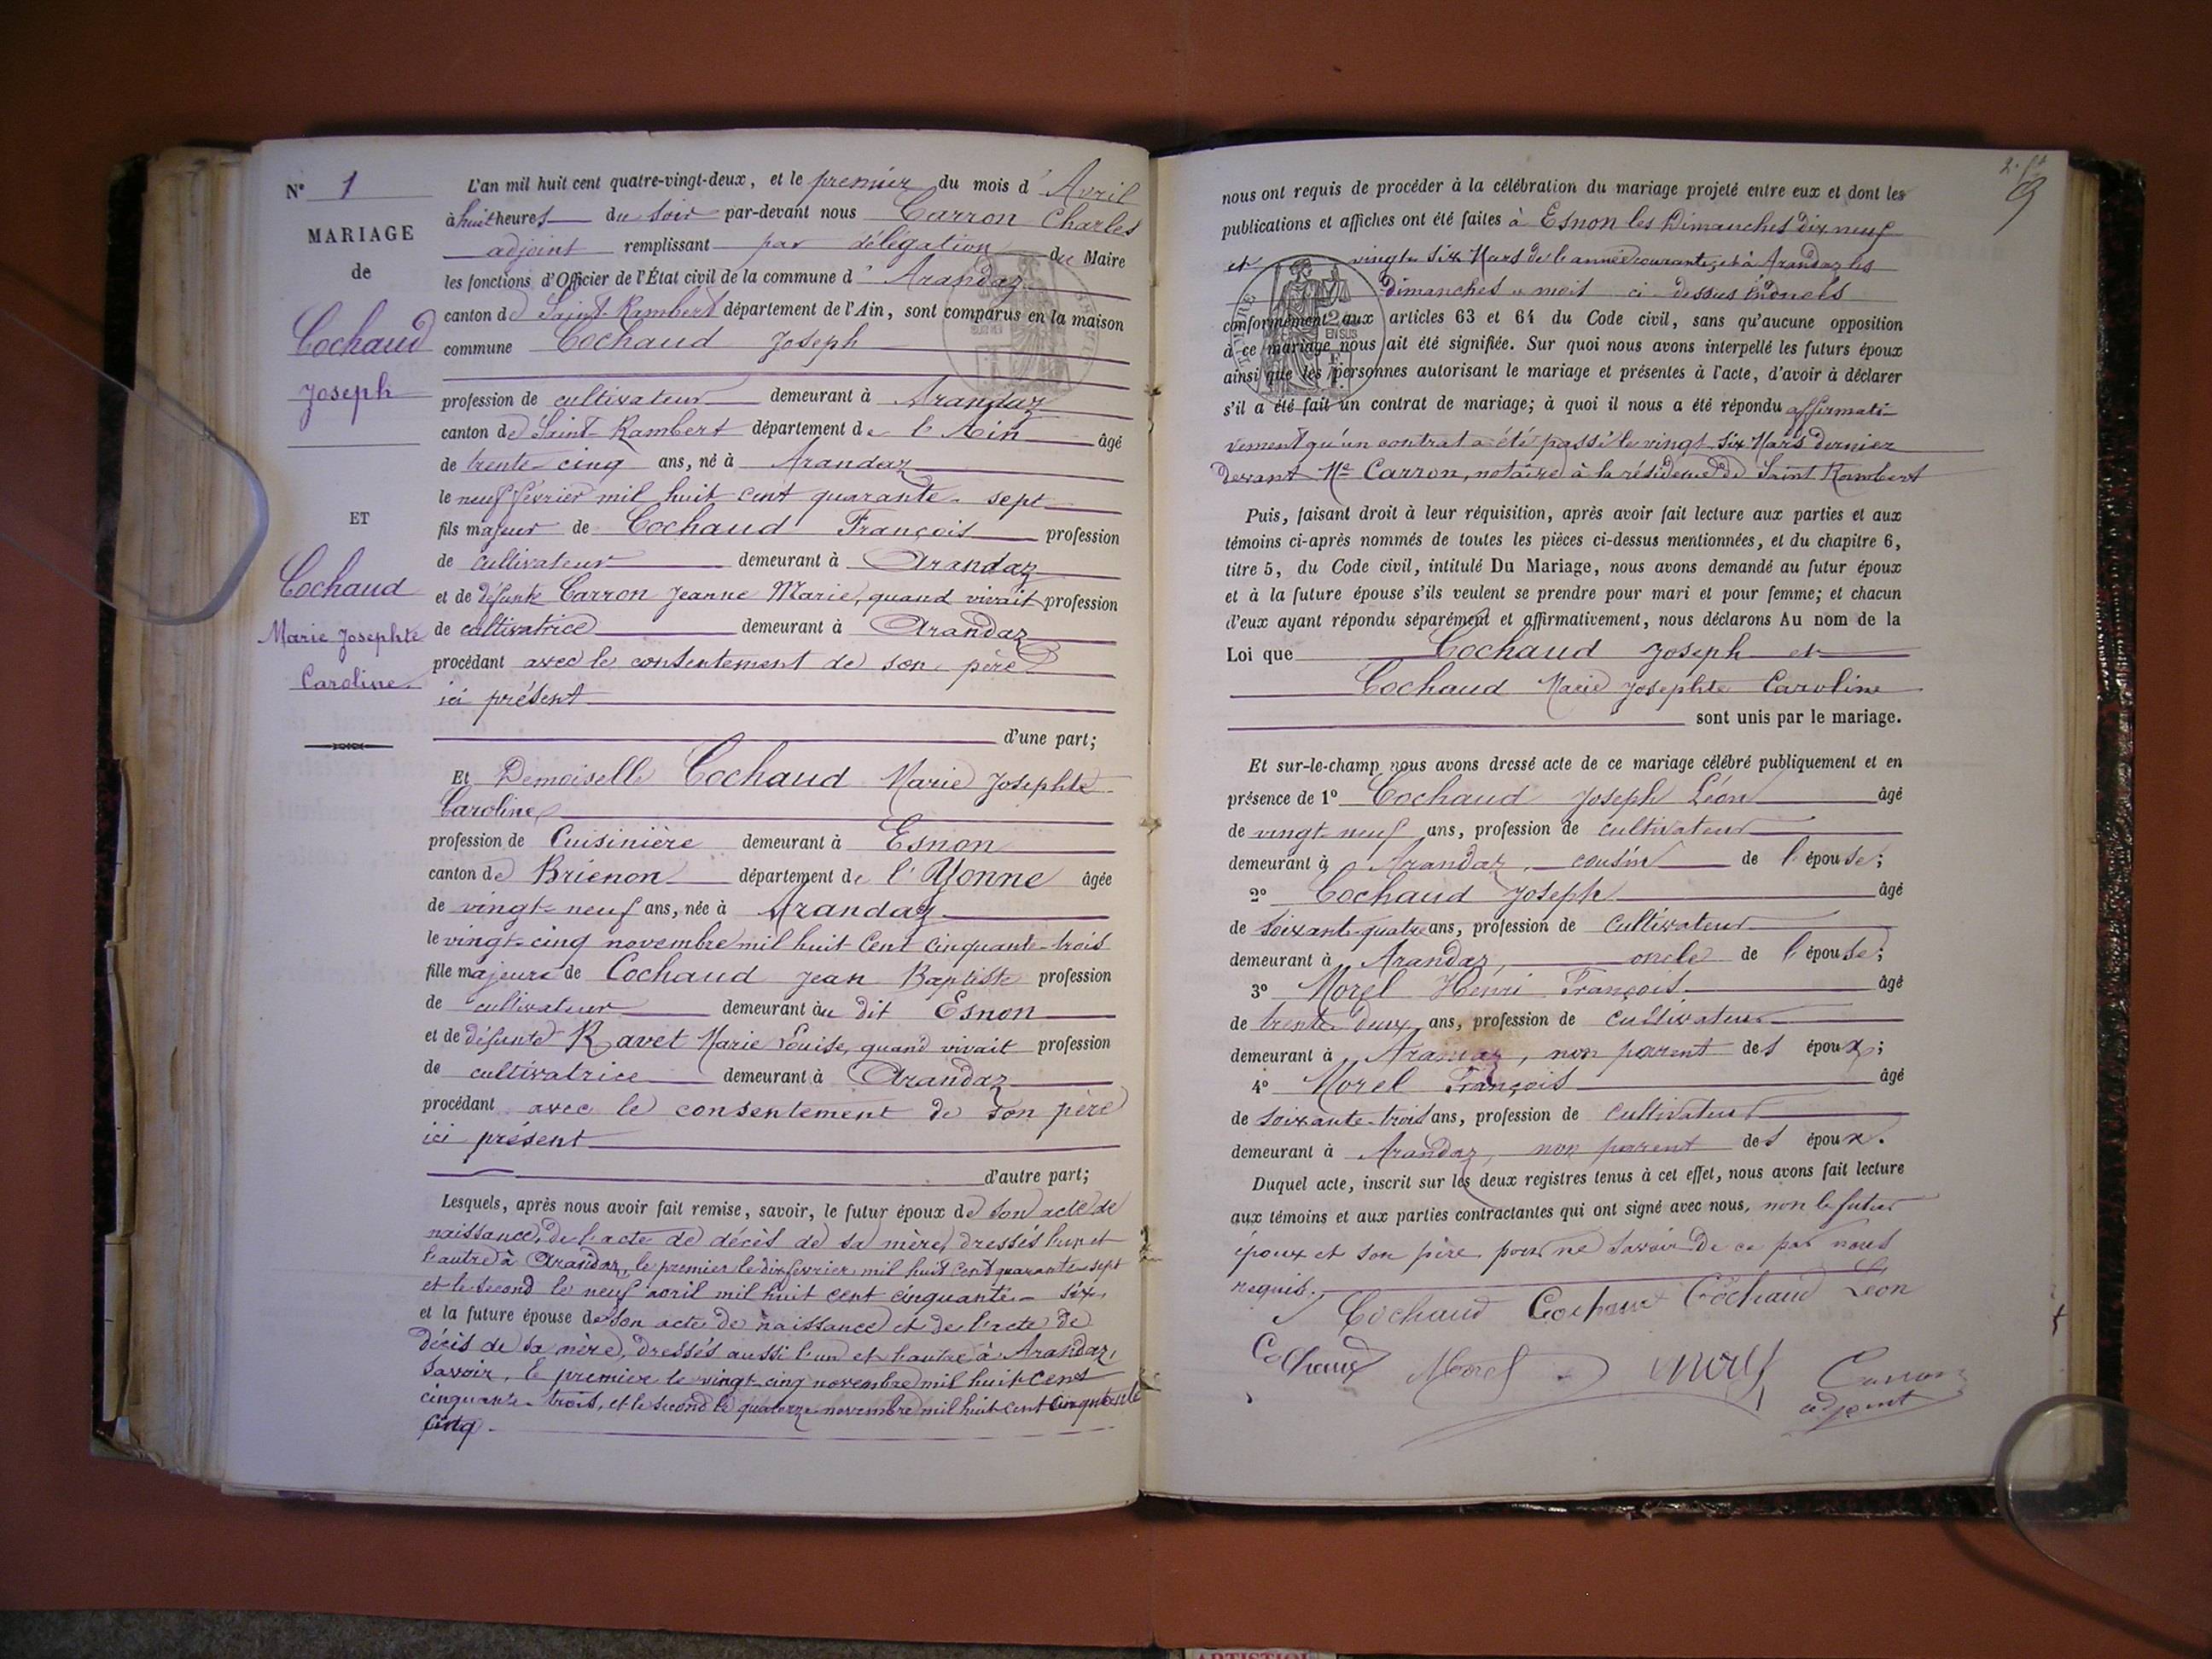 N° 1
MARIAGE
de
Cochaud
Joseph
ET
Cochaud
Marie Josephte
Caroline
L'an mil huit cent quatre-vingt-deux, et le premier du mois d'Avril
à huit heures du soir par-devant nous Carron Charles
adjoint remplissant par délégation du Maire
les fonctions d'Officier de l'État civil de la commune d'Arandaz
canton de Saint-Rambert département de l'Ain, sont comparus en la maison
commune Cochaud Joseph
profession de cultivateur demeurant à Arandaz
canton de Saint-Rambert département de l'Ain âgé
de trente-cinq ans, né à Arandaz
le neuf février mil huit cent quarante-sept
fils majeur de Cochaud François profession
de cultivateur demeurant à Arandaz
et de défunte Carron Jeanne Marie, quand vivait profession
de cultivatrice demeurant à Arandaz
procédant avec le consentement de son père
ici présent
d'une part;
Et Demoiselle Cochaud Marie Josephte
Caroline
profession de Cuisinière demeurant à Esnon
canton de Brienon département de l'Yonne âgée
de vingt-neuf ans, née à Arandaz
le vingt-cinq novembre mil huit cent cinquante-trois
fille majeure de Cochaud Jean Baptiste profession
de cultivateur demeurant au dit Esnon
et de défunte Ravet Marie Louise, quand vivait profession
de cultivatrice demeurant à Arandaz
procédant avec le consentement de son père
ici présent
d'autre part;
Lesquels, après nous avoir fait remise, savoir, le futur époux de son acte de
naissance, de l'acte de décès de sa mère, dressés l'un et
l'autre à Arandaz, le premier le dix février mil huit cent quarante-sept
et le second le neuf avril mil huit cent cinquante-six,
et la future épouse de son acte de naissance et de l'acte de
décès de sa mère, dressés aussi l'un et l'autre à Arandaz,
savoir, le premier le vingt-cinq novembre mil huit cent
cinquante-trois, et le second le quatorze novembre mil huit cent cinquante
cinq.
nous ont requis de procéder à la célébration du mariage projeté entre eux et dont les
publications et affiches ont été faites à Esnon les Dimanches dix neuf
et vingt-six Mars de l'année courante, et à Arandaz les
dimanches et mois ci-dessus énoncés
conformément aux articles 63 et 64 du Code civil, sans qu'aucune opposition
à ce mariage nous ait été signifiée. Sur quoi nous avons interpellé les futurs époux
ainsi que les personnes autorisant le mariage et présentes à l'acte, d'avoir à déclarer
s'il a été fait un contrat de mariage; à quoi il nous a été répondu affirmati-
vement qu'un contrat a été passé le vingt-six Mars dernier
devant Me Carron, notaire à la résidence de Saint Rambert
Puis, faisant droit à leur réquisition, après avoir fait lecture aux parties et aux
témoins ci-après nommés de toutes les pièces ci-dessus mentionnées, et du chapitre 6,
titre 5, du Code civil, intitulé Du Mariage, nous avons demandé au futur époux
et à la future épouse s'ils veulent se prendre pour mari et pour femme; et chacun
d'eux ayant répondu séparément et affirmativement, nous déclarons Au nom de la
Loi que Cochaud Joseph et
Cochaud Marie Josephte Caroline
sont unis par le mariage.
Et sur-le-champ nous avons dressé acte de ce mariage célébré publiquement et en
présence de 1° Cochaud Joseph Léon âgé
de vingt-neuf ans, profession de cultivateur
demeurant à Arandaz, cousin de l'épouse;
2° Cochaud Joseph âgé
de soixante-quatre ans, profession de cultivateur
demeurant à Arandaz, oncle de l'épouse;
3° Morel Henri François âgé
de trente-deux ans, profession de cultivateur
demeurant à Arandaz, non parent des époux;
4° Morel François âgé
de soixante-trois ans, profession de cultivateur
demeurant à Arandaz, non parent des époux.
Duquel acte, inscrit sur les deux registres tenus à cet effet, nous avons fait lecture
aux témoins et aux parties contractantes qui ont signé avec nous, non le futur
époux et son père pour ne savoir de ce par nous
requis.
Cochaud Cochaud Cochaud Léon
Cochaud Morel Morel Carron
adjoint